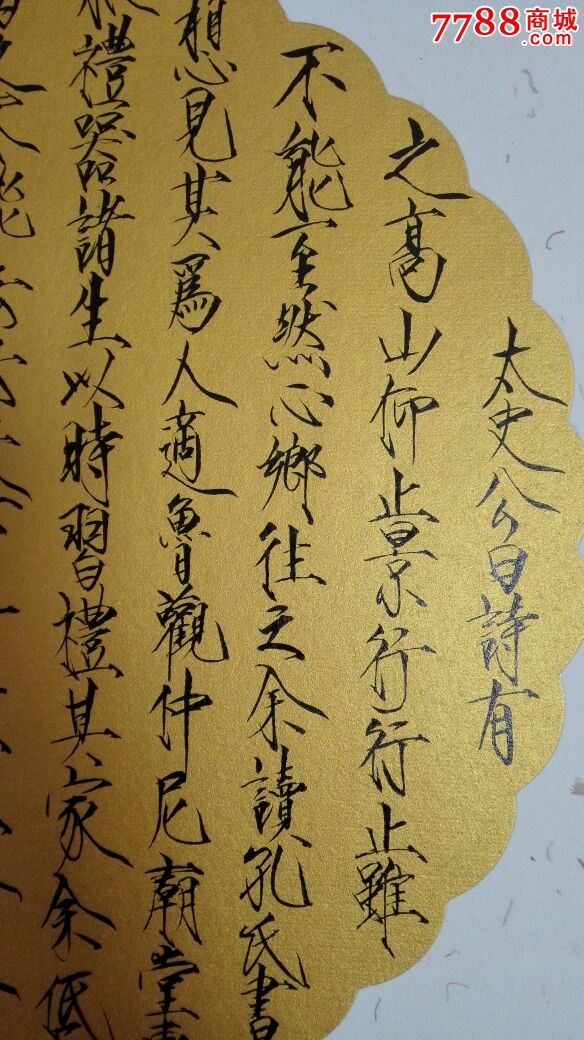 7788商城
.com
太史公曰詩有
之高山仰止景行行止雖
不能至然心鄉往之余讀孔氏書
想見其爲人適魯觀仲尼廟堂
禮器諸生以時習禮其家余低